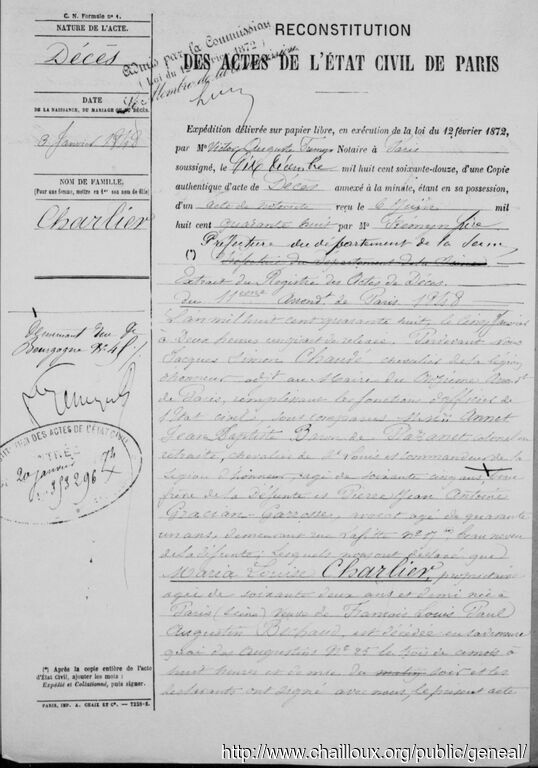 C. N. Formule nº 1.
NATURE DE L'ACTE.
Décès
DATE
DE LA NAISSANCE, DU MARIAGE OU DU DÉCÈS.
3 Janvier 1848
NOM DE FAMILLE.
(Pour une femme, mettre en 1er son nom de fille)
Charlier
demeurant rue de
Bourgogne Nº 45
DES ACTES DE L'ÉTAT CIVIL
20 janvier
(*) Après la copie entière de l'acte
d'État Civil, ajouter les mots :
Expédié et Collationné, puis signer.
PARIS, IMP. A. CHAIX ET Cie. — 7228-2.
Admis par la Commission
( Loi du 12 février 1872 )
Le Membre de la Commission
RECONSTITUTION
DES ACTES DE L'ÉTAT CIVIL DE PARIS
Expédition délivrée sur papier libre, en exécution de la loi du 12 février 1872,
par Me Victor Auguste Notaire à Paris
soussigné, le Dix décembre mil huit cent soixante-douze, d'une Copie
authentique d'acte de Décès annexé à la minute, étant en sa possession,
d'un acte de notoriété reçu le 6 mil
huit cent quarante huit par Me
Préfecture du département de la Seine
(*)
Extrait du Registre des Actes de Décès
du 11eme Arrondt de Paris 1848
L'an mil huit cent quarante huit, le cinq Janvier
à deux heures de relevée, Pardevant nous
Jacques Simon Chaudé chevalier de la légion
d'honneur adjt au Maire du onzième Arrondt
de Paris, remplissant les fonctions d'officier de
l'État civil, sont comparus Messrs Annet
Jean Baptiste Baron de colonel en
retraite, chevalier de St Louis et commandeur de la
Légion d'honneur, agé de soixante cinq ans
frère de la défunte et Pierre Jean Antoine
avocat agé de quarante
un ans, demeurant rue Lafitte nº neveu
de la défunte; Lesquels nous ont déclaré que
Maria Louise Charlier, propriétaire
agée de soixante deux ans et demi née à
Paris (Seine) veuve de François Louis Paul
Augustin est décédée en sa demeure
quai des Augustins Nº 25 le trois de ce mois à
huit heures et demie du matin soir et les
déclarants ont signé avec nous, le présent acte
http://www.chailloux.org/public/geneal/